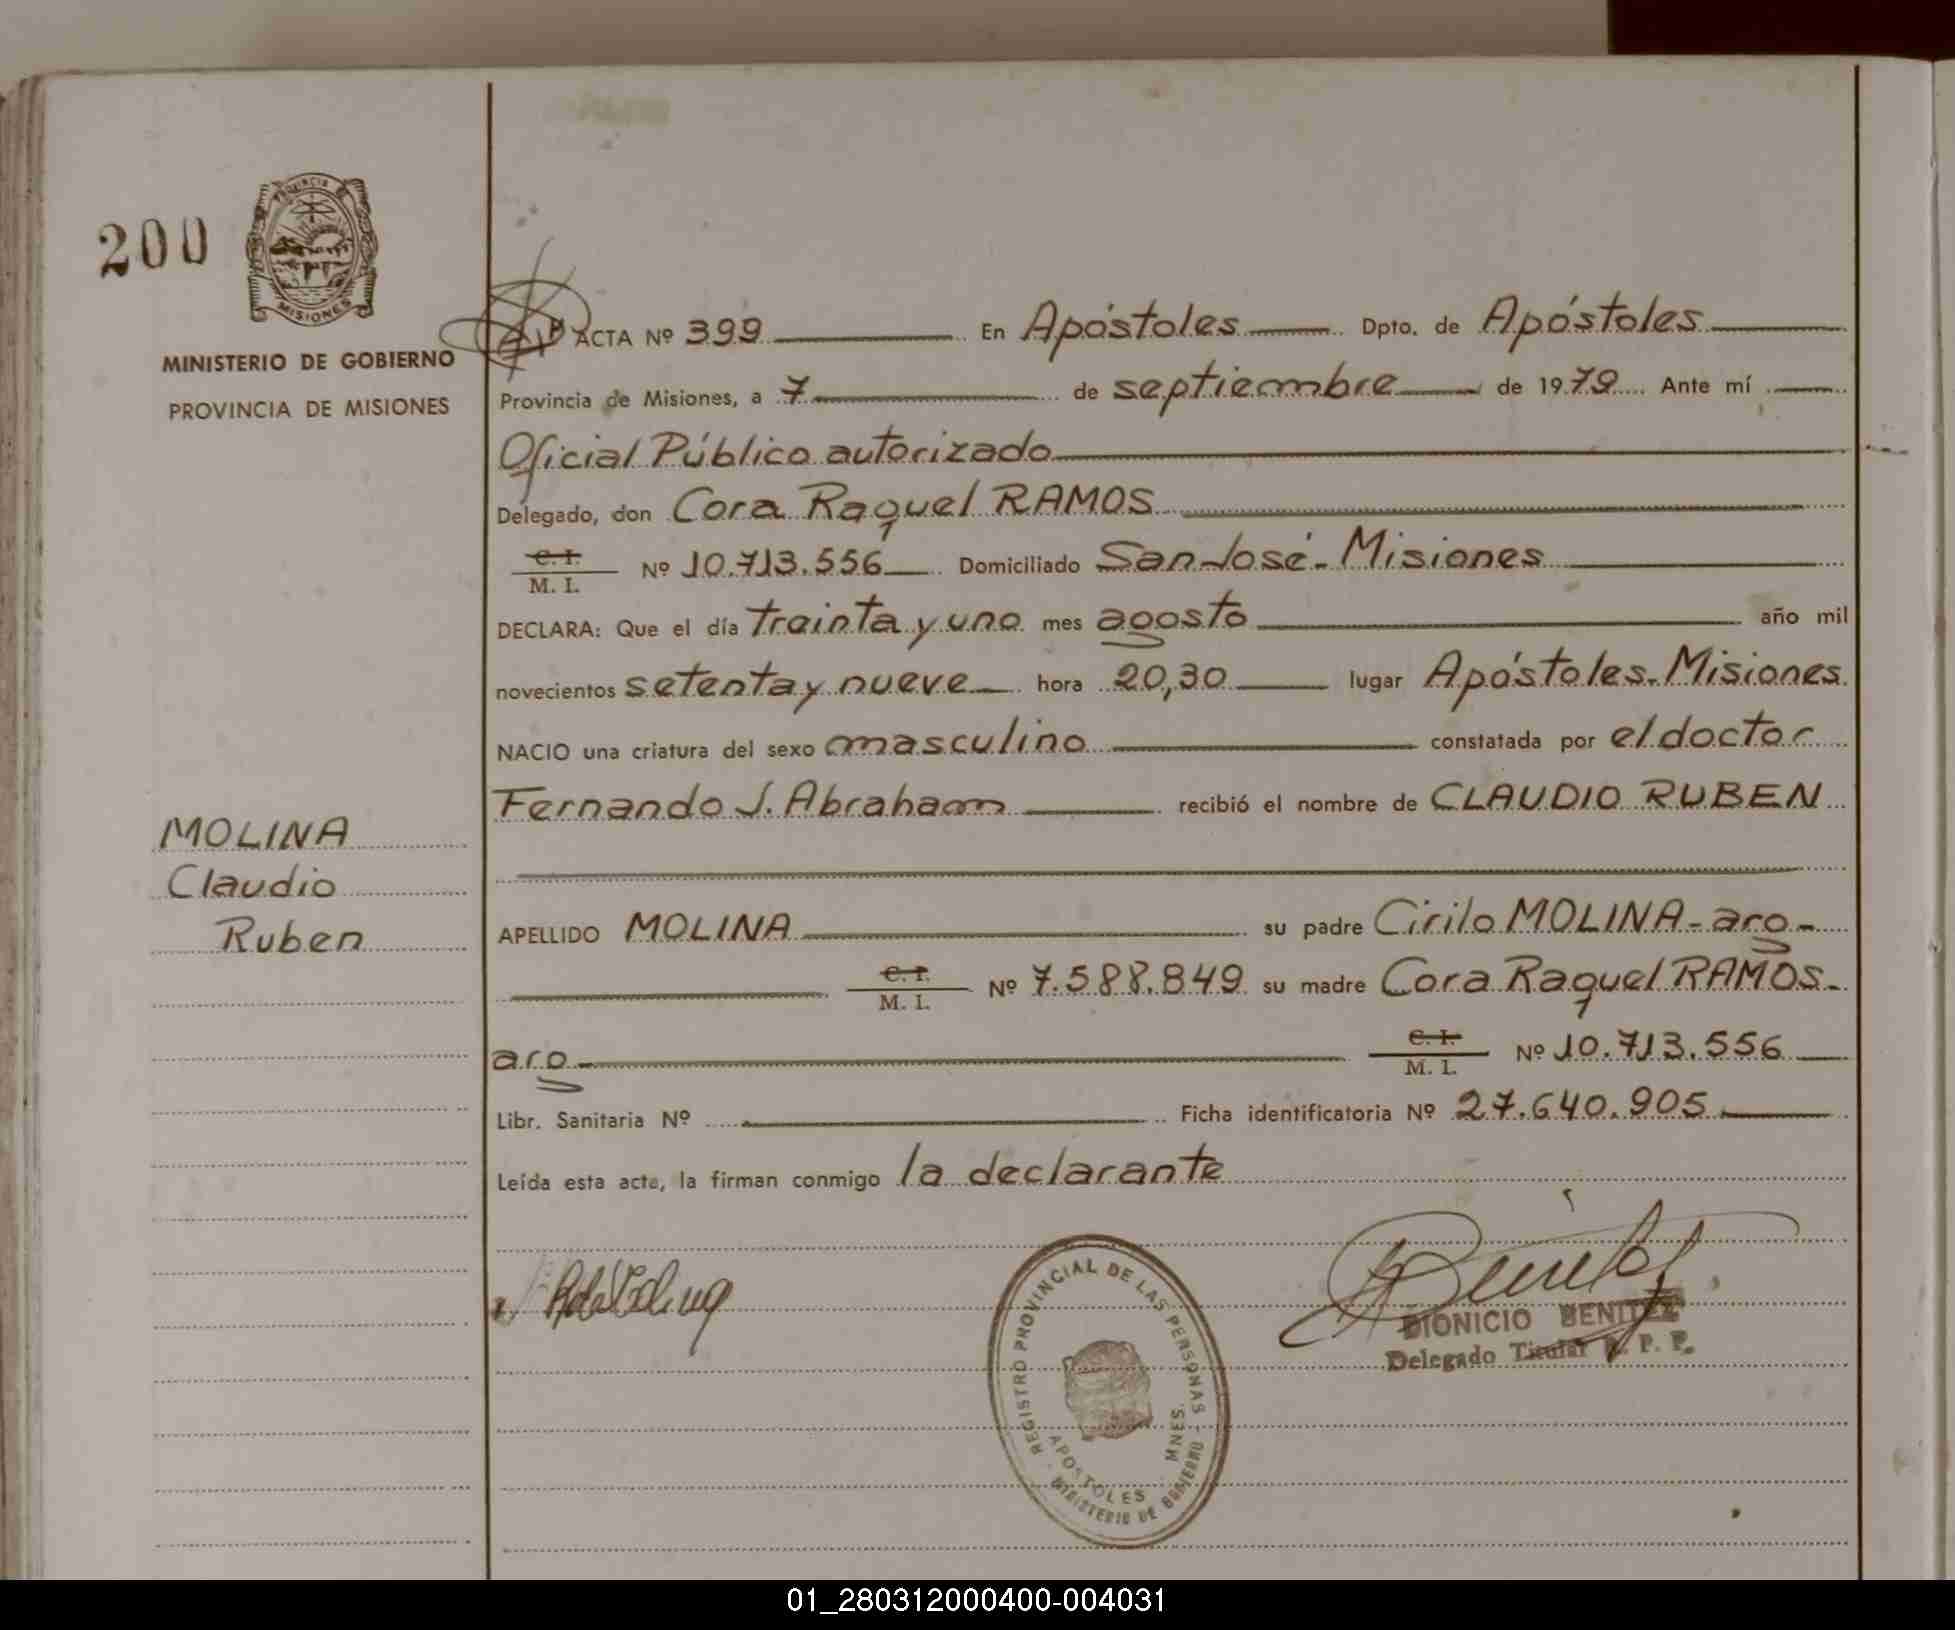 200
PROVINCIA DE
MISIONES
MINISTERIO DE GOBIERNO
PROVINCIA DE MISIONES
ACTA Nº 399 En Apóstoles Dpto. de Apóstoles
Provincia de Misiones, a 7 de septiembre de 1979 Ante mí
Oficial Público autorizado
Delegado, don Cora Raquel RAMOS
C. I.
M. I. Nº 10.713.556 Domiciliado San José - Misiones
DECLARA: Que el día treinta y uno mes agosto año mil
novecientos setenta y nueve hora 20,30 lugar Apóstoles - Misiones
NACIO una criatura del sexo masculino constatada por el doctor
Fernando J. Abraham recibió el nombre de CLAUDIO RUBEN
MOLINA
Claudio
Ruben
APELLIDO MOLINA su padre Cirilo MOLINA - aro -
C. I.
M. I. Nº 7.588.849 su madre Cora Raquel RAMOS -
aro - C. I.
M. I. Nº 10.713.556
Libr. Sanitaria Nº Ficha identificatoria Nº 27.640.905
Leída esta acta, la firman conmigo la declarante
REGISTRO PROVINCIAL DE LAS PERSONAS
APOSTOLES MNES.
MINISTERIO DE GOBIERNO
DIONICIO BENITEZ
Delegado Titular R. P. P.
01_280312000400-004031